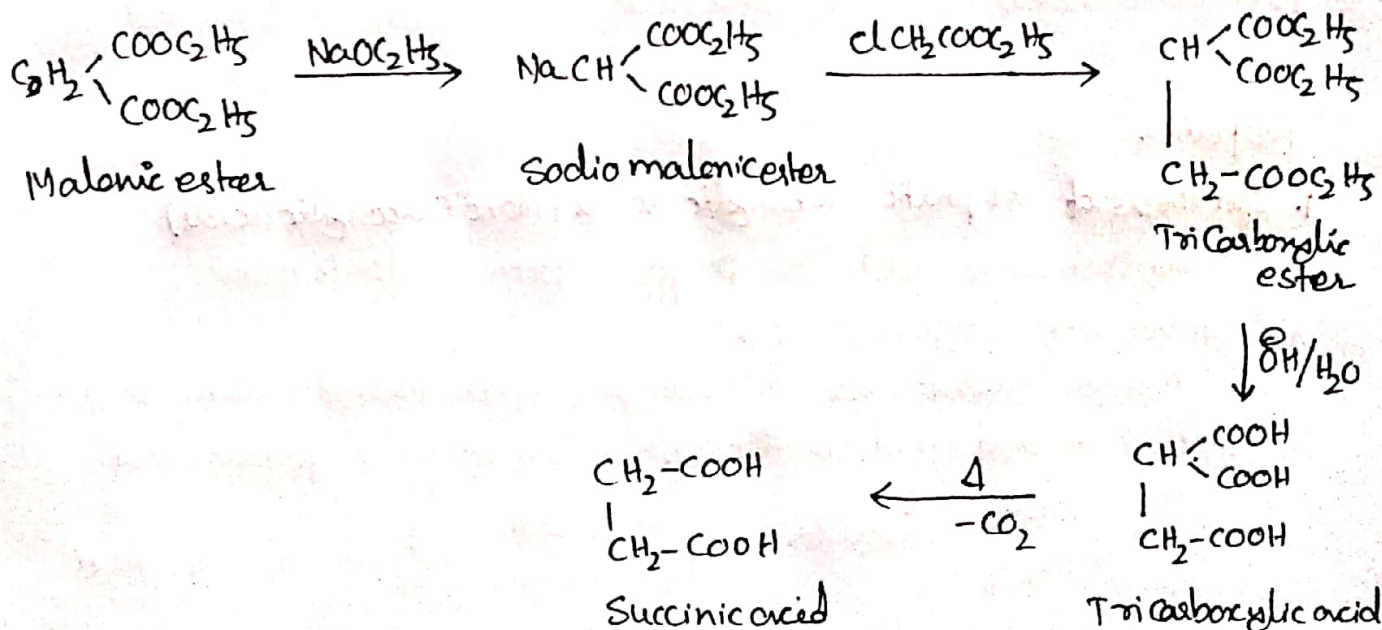 CH₂ COOC₂H₅ COOC₂H₅
NaOC₂H₅
NaCH COOC₂H₅ COOC₂H₅
ClCH₂COOC₂H₅
CH COOC₂H₅ COOC₂H₅
CH₂-COOC₂H₅
Malonic ester
Sodio malonicester
Tri Carboxylic
ester
ӨH/H₂O
CH COOH COOH
CH₂-COOH
Tricarboxylic acid
Δ
-CO₂
CH₂-COOH
CH₂-COOH
Succinic acid